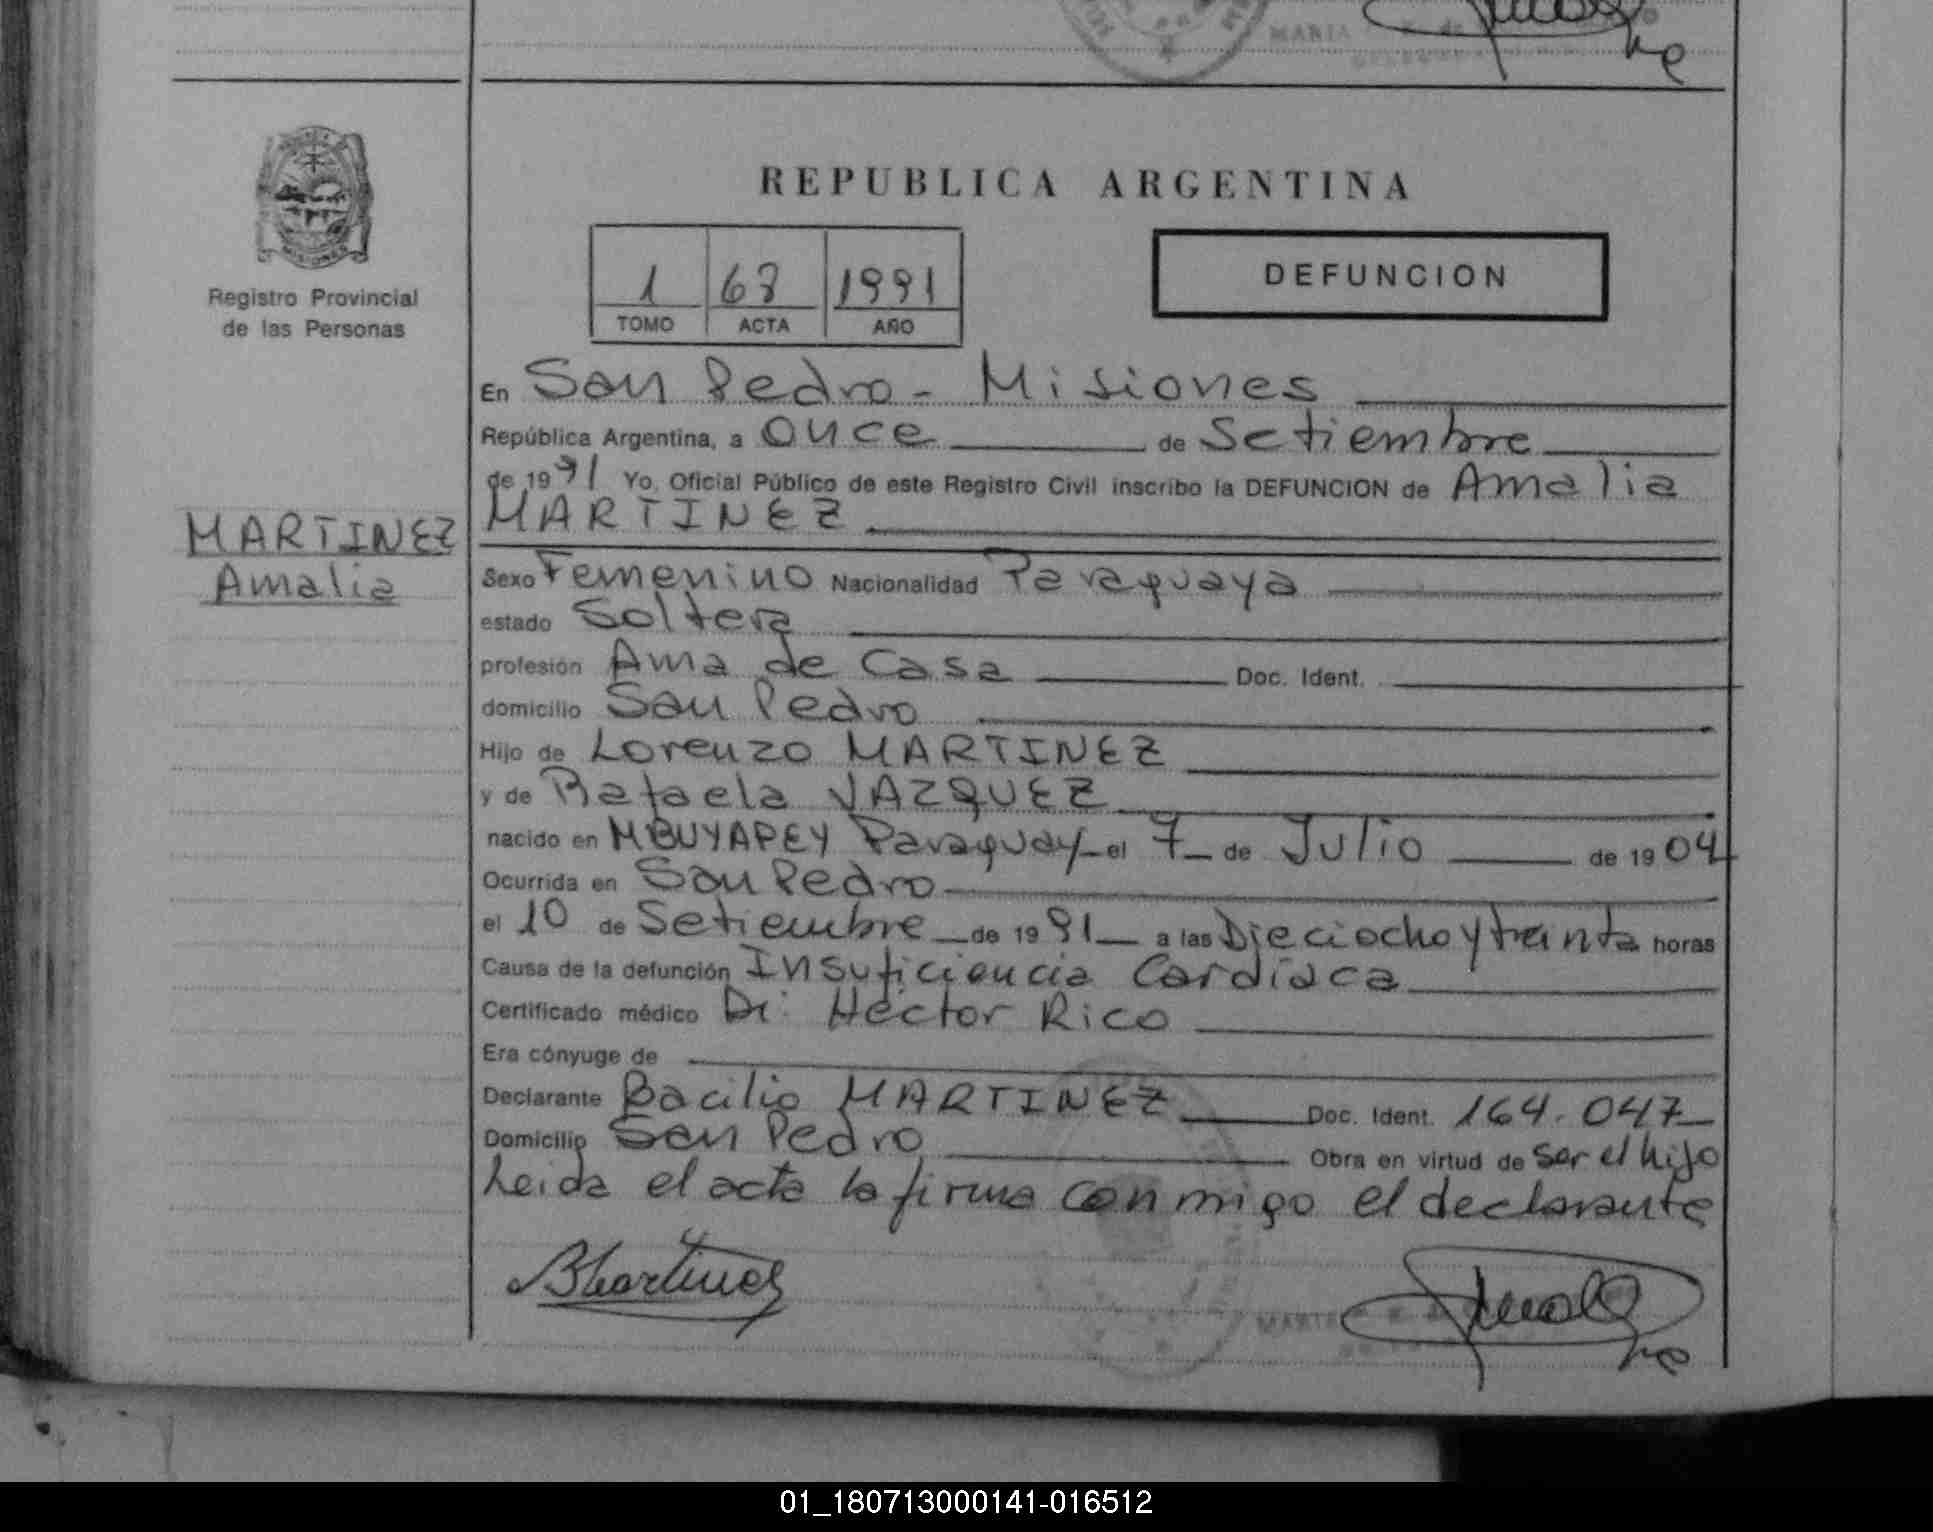 REPUBLICA ARGENTINA
Registro Provincial
de las Personas
1 68 1991
TOMO ACTA AÑO
DEFUNCION
En San Pedro - Misiones
República Argentina, a Once de Setiembre
de 1991 Yo, Oficial Público de este Registro Civil inscribo la DEFUNCION de Amalia
MARTINEZ
MARTINEZ
Amalia
Sexo Femenino Nacionalidad Paraguaya
estado Soltera
profesión Ama de Casa Doc. Ident.
domicilio San Pedro
Hijo de Lorenzo MARTINEZ
y de Rafaela VAZQUEZ
nacido en MBUYAPEY Paraguay el 7 de Julio de 1904
Ocurrida en San Pedro
el 10 de Setiembre de 1991 a las Dieciocho y treinta horas
Causa de la defunción Insuficiencia Cardíaca
Certificado médico Dr: Héctor Rico
Era cónyuge de
Declarante Bacilio MARTINEZ Doc. Ident. 164.047
Domicilio San Pedro Obra en virtud de ser el hijo
Leida el acta la firma conmigo el declarante
BMartinez
01_180713000141-016512